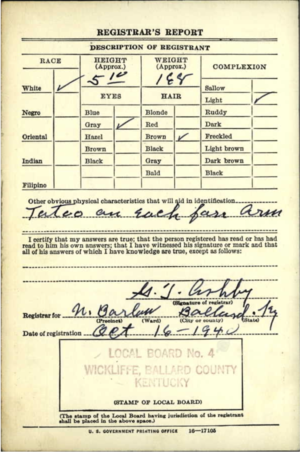 REGISTRAR'S REPORT
DESCRIPTION OF REGISTRANT
RACE HEIGHT (Approx.) WEIGHT (Approx.) COMPLEXION
5 10 188
White ✓ Sallow
EYES HAIR Light ✓
Negro Blue Blonde Ruddy
Gray ✓ Red Dark
Oriental Hazel Brown ✓ Freckled
Brown Black Light brown
Indian Black Gray Dark brown
Bald Black
Filipino
Other obvious physical characteristics that will aid in identification
Tatoo on Each farr Arm
I certify that my answers are true; that the person registered has read or has had
read to him his own answers; that I have witnessed his signature or mark and that
all of his answers of which I have knowledge are true, except as follows:
G. T. Ashby
(Signature of registrar)
Registrar for N. Barlow Ballard, Ky
(Precinct) (Ward) (City or county) (State)
Date of registration Oct 16-1940
LOCAL BOARD No. 4
WICKLIFFE, BALLARD COUNTY
KENTUCKY
(STAMP OF LOCAL BOARD)
(The stamp of the Local Board having jurisdiction of the registrant
shall be placed in the above space.)
U. S. GOVERNMENT PRINTING OFFICE 16—17105